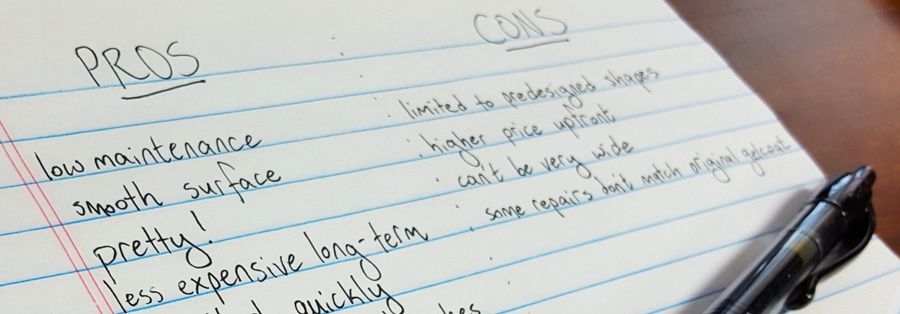 PROS
low maintenance
smooth surface
pretty!
less expensive long-term
quickly
CONS
limited to predesigned shapes
higher price upfront
can't be very wide
some repairs don't match original gelcoat